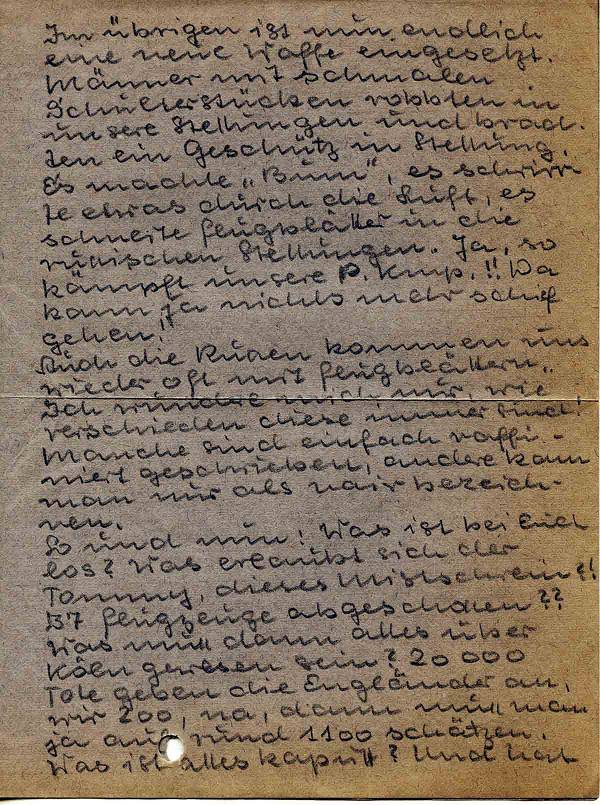 Im übrigen ist nun endlich
eine neue Waffe eingesetzt.
Männer mit schmalen
Schulterstücken robbten in
unsere Stellungen und brach-
ten ein Geschütz in Stellung.
Es machte „Bum“, es schwirr
te etwas durch die Luft, es
schneite Flugblätter in die
russischen Stellungen. Ja, so
kämpft unsere P. Knp.!! Da
kann ja nichts mehr schief
gehen!!
Auch die Russen kommen uns
wieder oft mit Flugblättern.
Ich wundere mich nur, wie
verschieden diese immer sind!
Manche sind einfach raffi-
niert geschrieben, andere kann
man nur als naiv bezeich-
nen.
So und nun! Was ist bei Euch
los? Was erlaubt sich der
Tommy, dieses Mistschwein?!
37 Flugzeuge abgeschossen??
Was muß dann alles über
Köln gewesen sein? 20 000
Tote geben die Engländer an,
wir 200, na, dann muß man
ja auf rund 1100 schätzen.
Was ist alles kaputt? Und hat